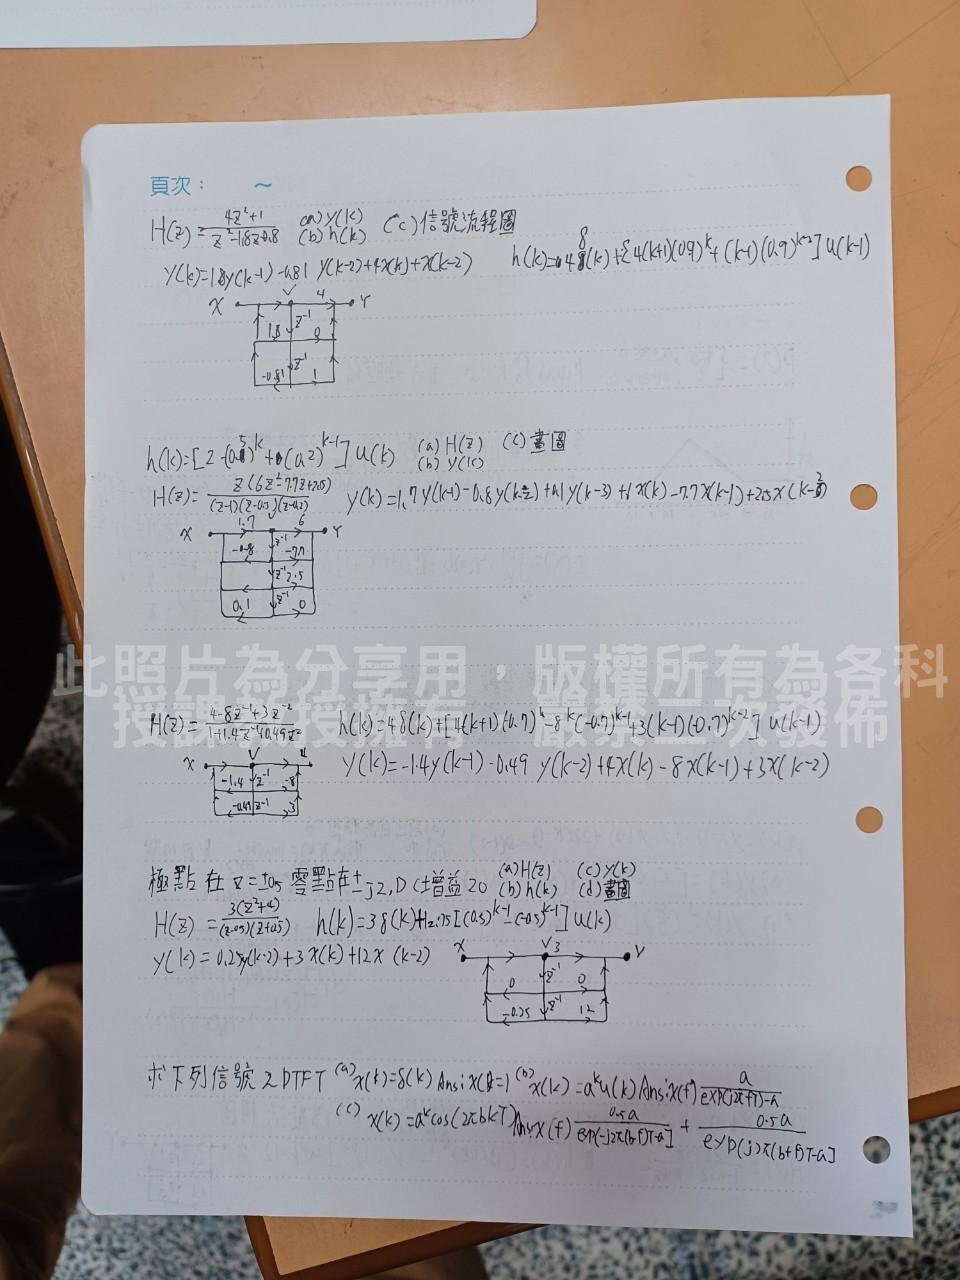 頁次： ～
H(z)=\frac{4z²+1}{z²-1.8z0.8} (a)y(k) (b)h(k) (c)信號流程圖
y(k)=1.8y(k-1)-0.81 y(k-2)+4x(k)+x(k-2)
h(k)=4δ(k)+[4(k+1)(0.9)^k+(k-1)(0.9)^{k-2}]u(k-1)
X V 4 Y
1.8 z⁻¹ 0
-0.81 z⁻¹ 1
h(k)=[2-(0.5)^k+(0.2)^{k-1}]u(k) (a)H(z) (b)y(k) (c)畫圖
H(z)=\frac{z(6z²-7.7z+2.5)}{(z-1)(z-0.5)(z-0.2)}
y(k)=1.7y(k-1)-0.8y(k-2)+0.1y(k-3)+6x(k)-7.7x(k-1)+2.5x(k-2)
X 1.7 6 Y
-0.8 z⁻¹ -7.7
z⁻¹ 2.5
0.1 z⁻¹ 0
此照片為分享用，版權所有為各科
授課教授擁有 嚴禁二次發佈
H(z)=\frac{4-8z⁻¹+3z⁻²}{1+1.4z⁻¹+0.49z⁻²}
h(k)=4δ(k)+[4(k+1)(-0.7)^k-8k(-0.7)^{k-1}+3(k-1)(-0.7)^{k-2}]u(k-1)
y(k)=-1.4y(k-1)-0.49 y(k-2)+4x(k)-8x(k-1)+3x(k-2)
X V 4
-1.4 z⁻¹ -8
-0.49 z⁻¹ 3
極點在z=±0.5 零點在±j2, DC增益20 (a)H(z) (b)h(k) (c)y(k) (d)畫圖
H(z)=\frac{3(z²+4)}{(z-0.5)(z+0.5)} h(k)=3δ(k)+12.75[(0.5)^{k-1}-(-0.5)^{k-1}]u(k)
y(k)=0.25y(k-2)+3x(k)+12x(k-2)
X V 3 Y
0 z⁻¹ 0
-0.25 z⁻¹ 12
求下列信號之DTFT (a)x(k)=δ(k) Ans:X(f)=1 (b)x(k)=a^k u(k) Ans:X(f) \frac{a}{exp(j2πfT)-a}
(c) x(k)=a^k cos(2πbkT) Ans:X(f) \frac{0.5a}{exp[-j2π(b-f)T-a]} + \frac{0.5a}{exp[j2π(b+f)T-a]}